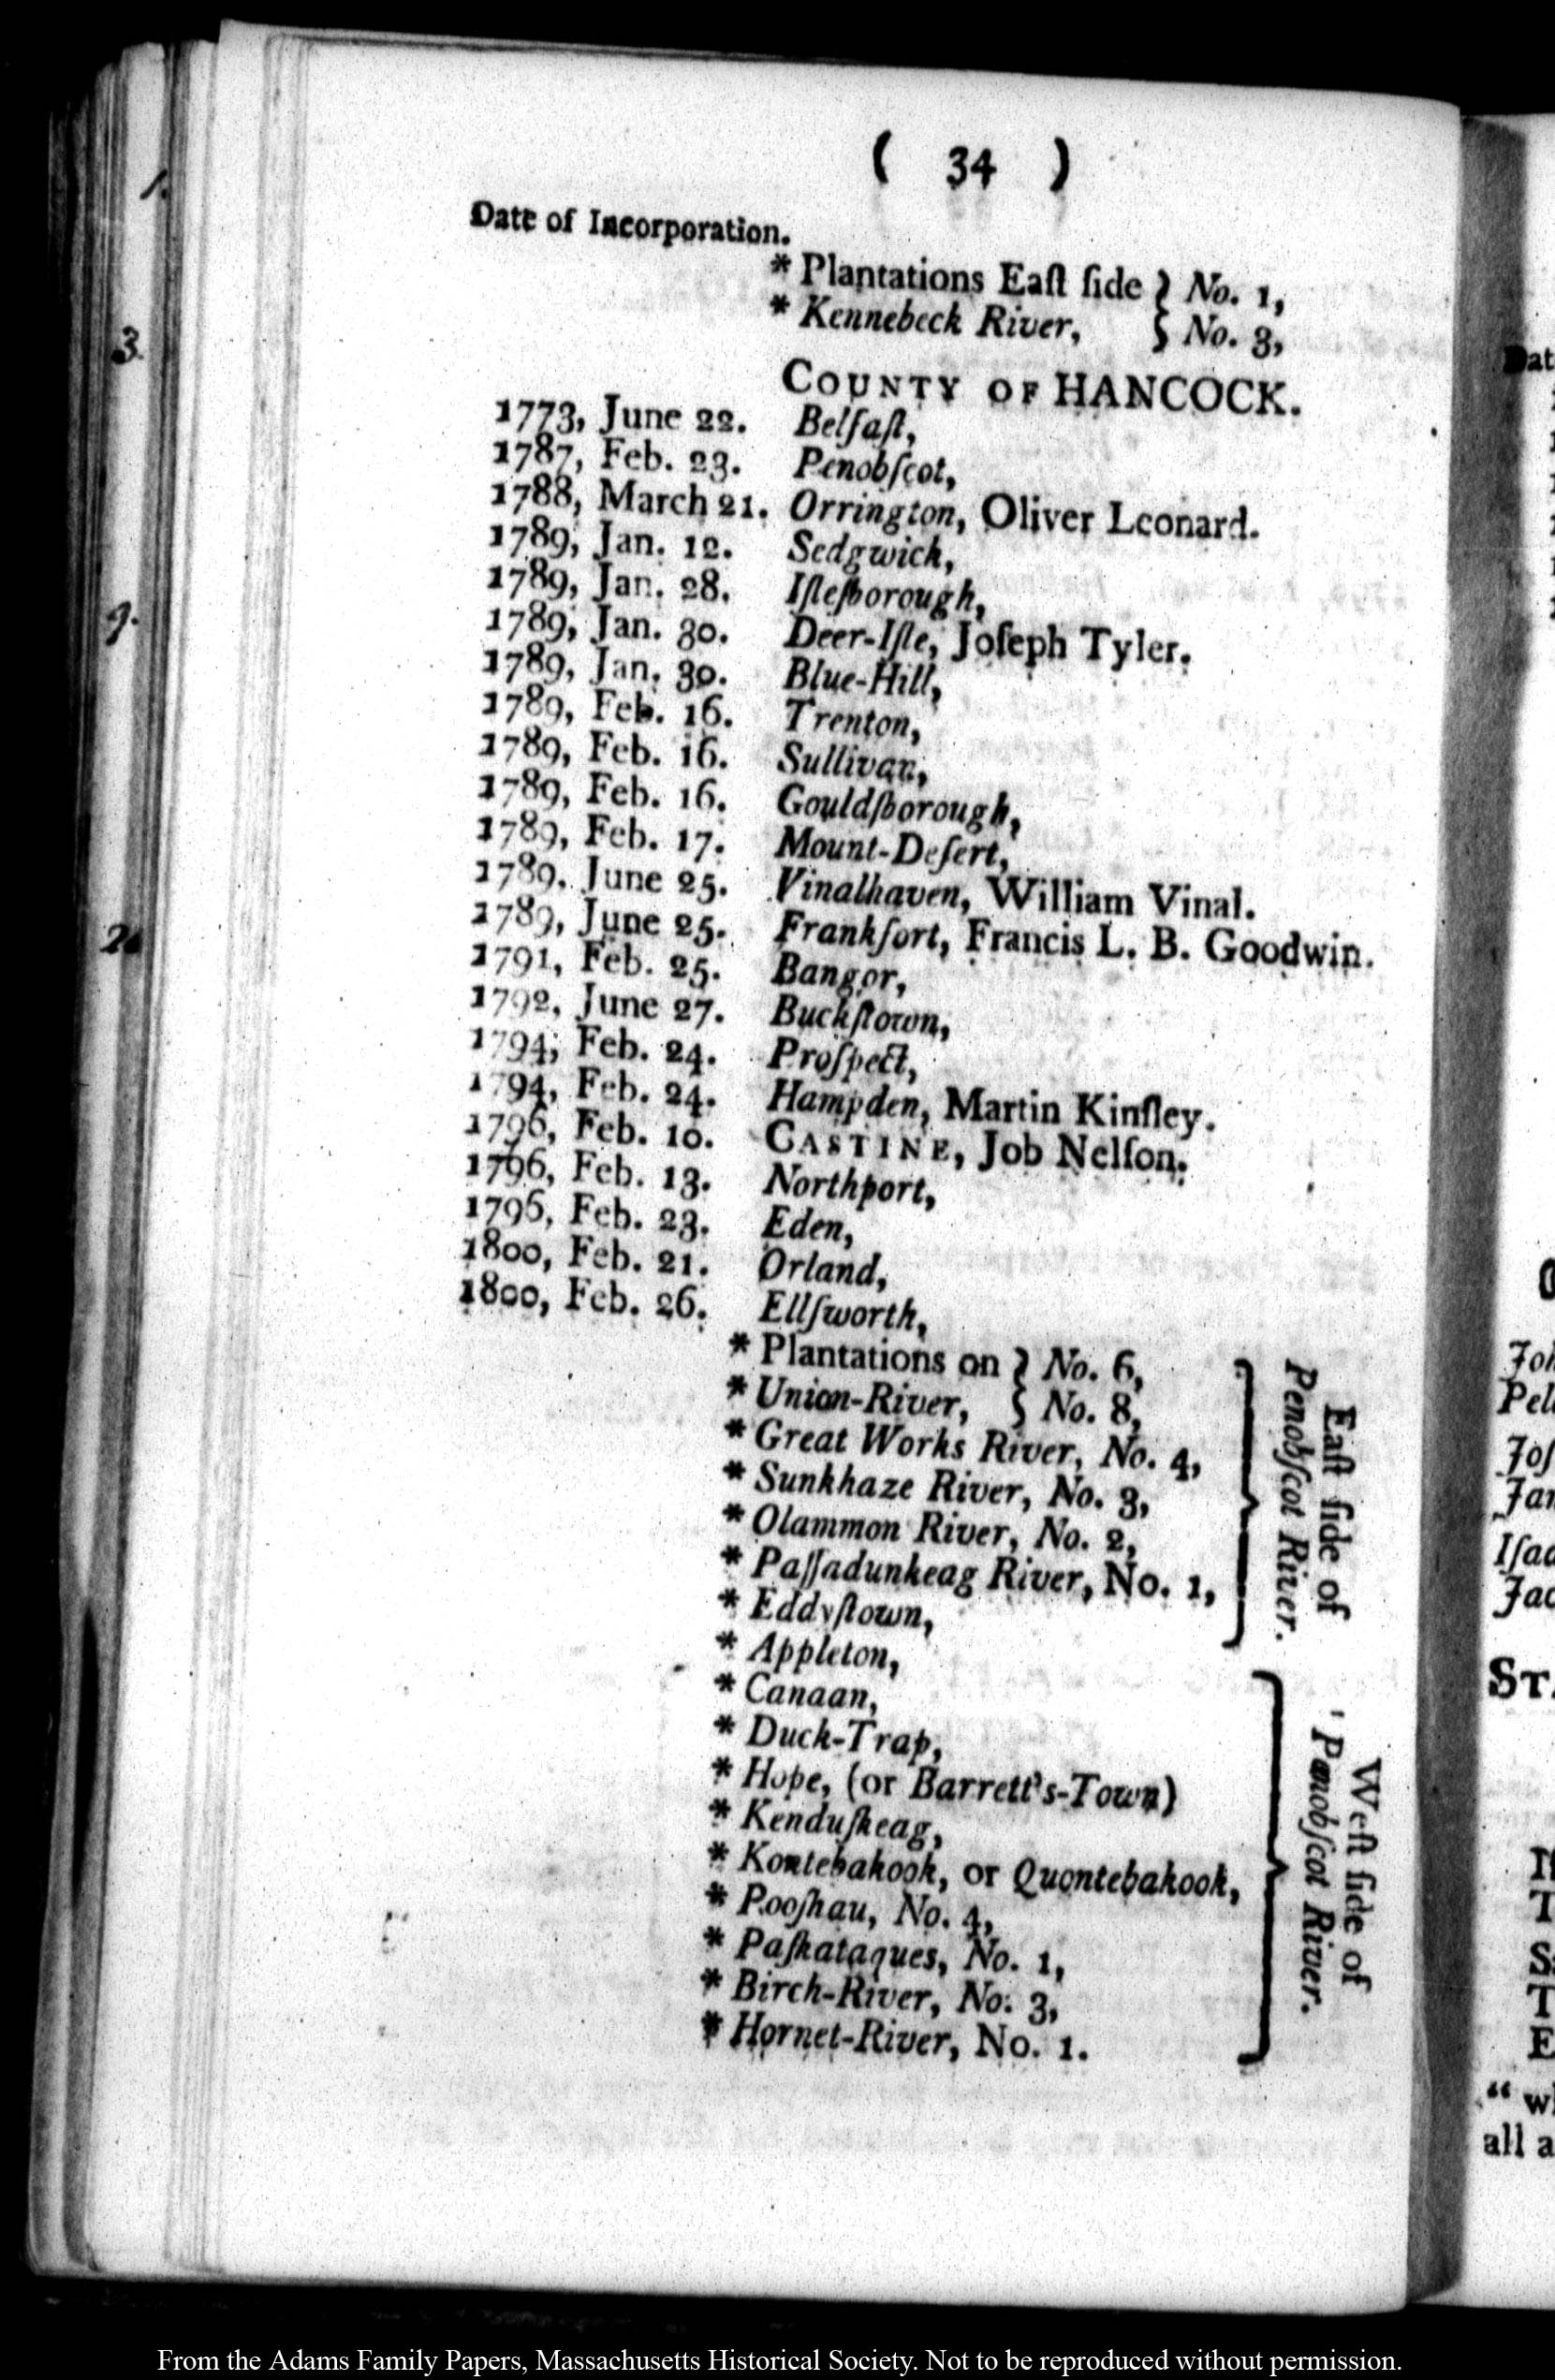 ( 34 )
Date of Incorporation.
* Plantations Eaſt ſide } No. 1,
* Kennebeck River, } No. 3,
COUNTY OF HANCOCK.
1773, June 22. Belfaſt,
1787, Feb. 23. Penobſcot,
1788, March 21. Orrington, Oliver Leonard.
1789, Jan. 12. Sedgwich,
1789, Jan. 28. Iſleſborough,
1789, Jan. 30. Deer-Iſle, Joſeph Tyler.
1789, Jan. 30. Blue-Hill,
1789, Feb. 16. Trenton,
1789, Feb. 16. Sullivan,
1789, Feb. 16. Gouldſborough,
1789, Feb. 17. Mount-Deſert,
1789, June 25. Vinalhaven, William Vinal.
1789, June 25. Frankfort, Francis L. B. Goodwin.
1791, Feb. 25. Bangor,
1792, June 27. Buckſtown,
1794, Feb. 24. Proſpect,
1794, Feb. 24. Hampden, Martin Kinſley.
1796, Feb. 10. CASTINE, Job Nelſon.
1796, Feb. 13. Northport,
1796, Feb. 23. Eden,
1800, Feb. 21. Orland,
1800, Feb. 26. Ellſworth,
* Plantations on } No. 6,
* Union-River, } No. 8,
* Great Works River, No. 4,
* Sunkhaze River, No. 3,
* Olammon River, No. 2,
* Paſſadunkeag River, No. 1,
* Eddyſtown,
East ſide of
Penobſcot River.
* Appleton,
* Canaan,
* Duck-Trap,
* Hope, (or Barrett's-Town)
* Kenduſkeag,
* Kontebakook, or Quontebakook,
* Pooſhau, No. 4,
* Paſkataques, No. 1,
* Birch-River, No. 3,
* Hornet-River, No. 1.
Weſt ſide of
Penobſcot River.
From the Adams Family Papers, Massachusetts Historical Society. Not to be reproduced without permission.